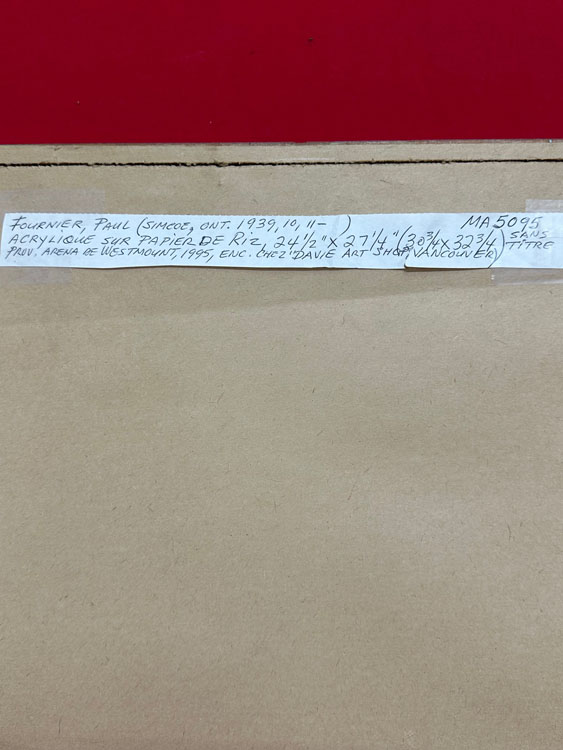 FOURNIER, PAUL (SIMCOE, ONT. 1939, 10, 11- ) MA5095
ACRYLIQUE SUR PAPIER DE RIZ, 24 1/2" X 27 1/4" (30 3/4 X 32 3/4) SANS TITRE
PROV. ARENA DE WESTMOUNT, 1995, ENC. CHEZ "DAVIE ART SHOP, VANCOUVER)